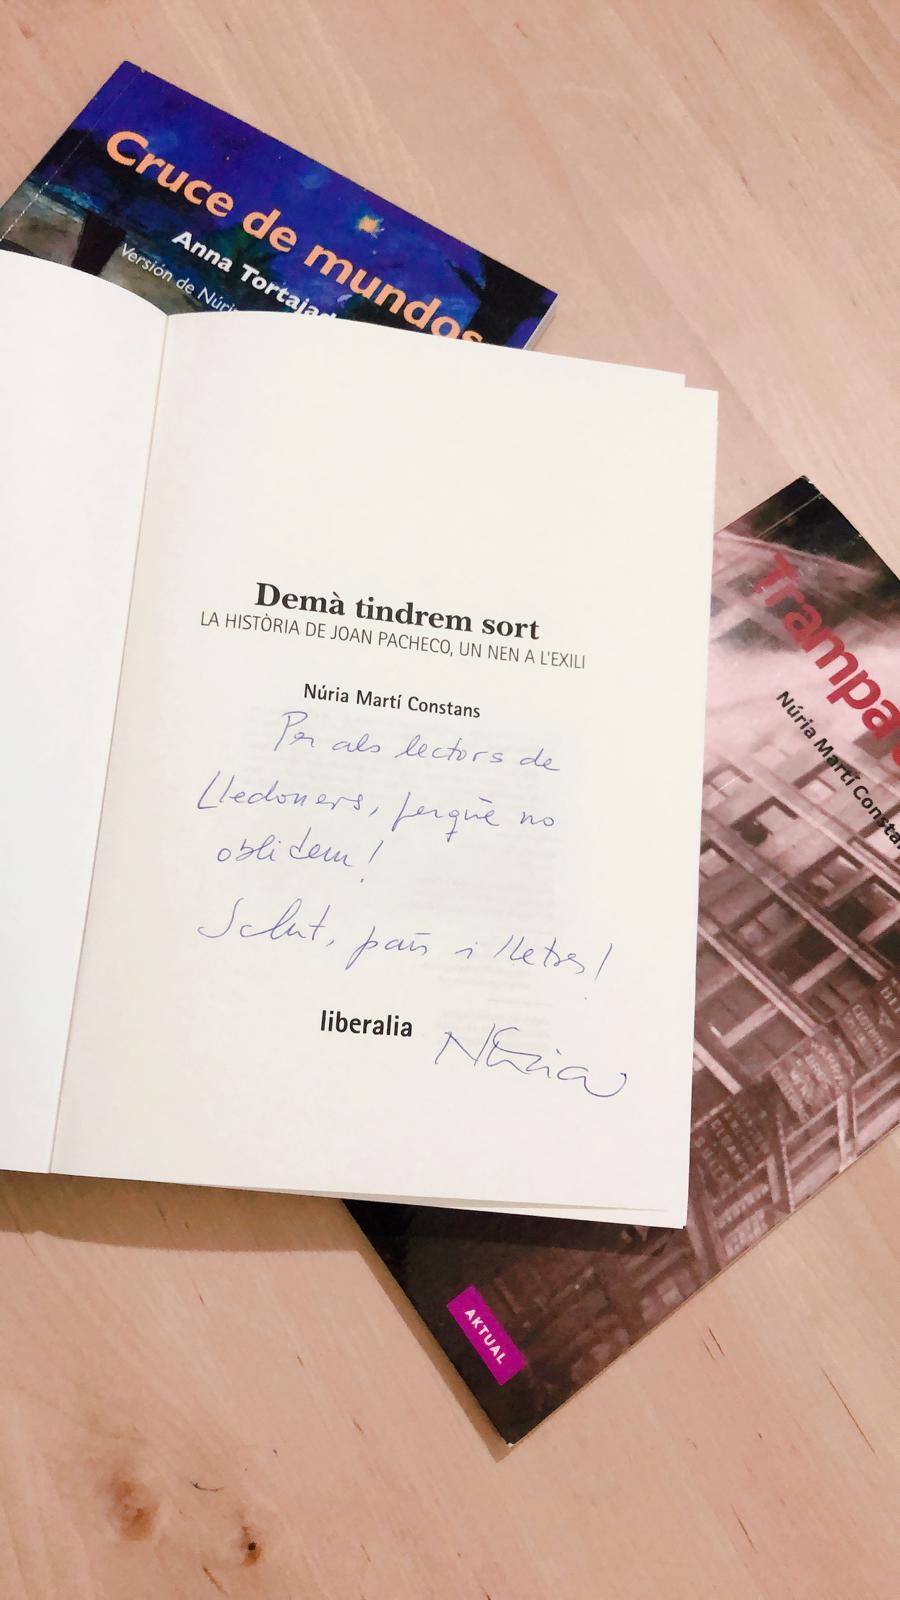 Cruce de mundos
Anna Tortajad
Versión de Núri
Demà tindrem sort
LA HISTÒRIA DE JOAN PACHECO, UN NEN A L'EXILI
Núria Martí Constans
Per als lectors de
Lledoners, perquè no
oblidem!
Salut, país i lletres!
liberalia
Núria
Trampa
Núria Martí Constan
AKTUAL